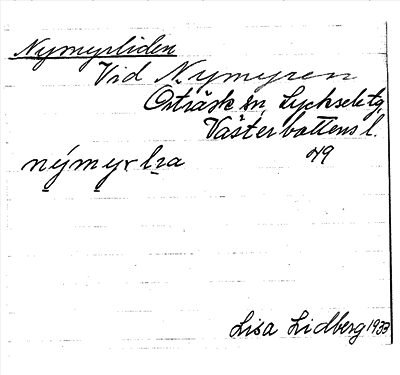 Nymyrliden
Vid Nymyren
Örträsk sn, Lycksele tg
Västerbottens l.
nýmyr lıa 49
Lisa Lidberg 1933